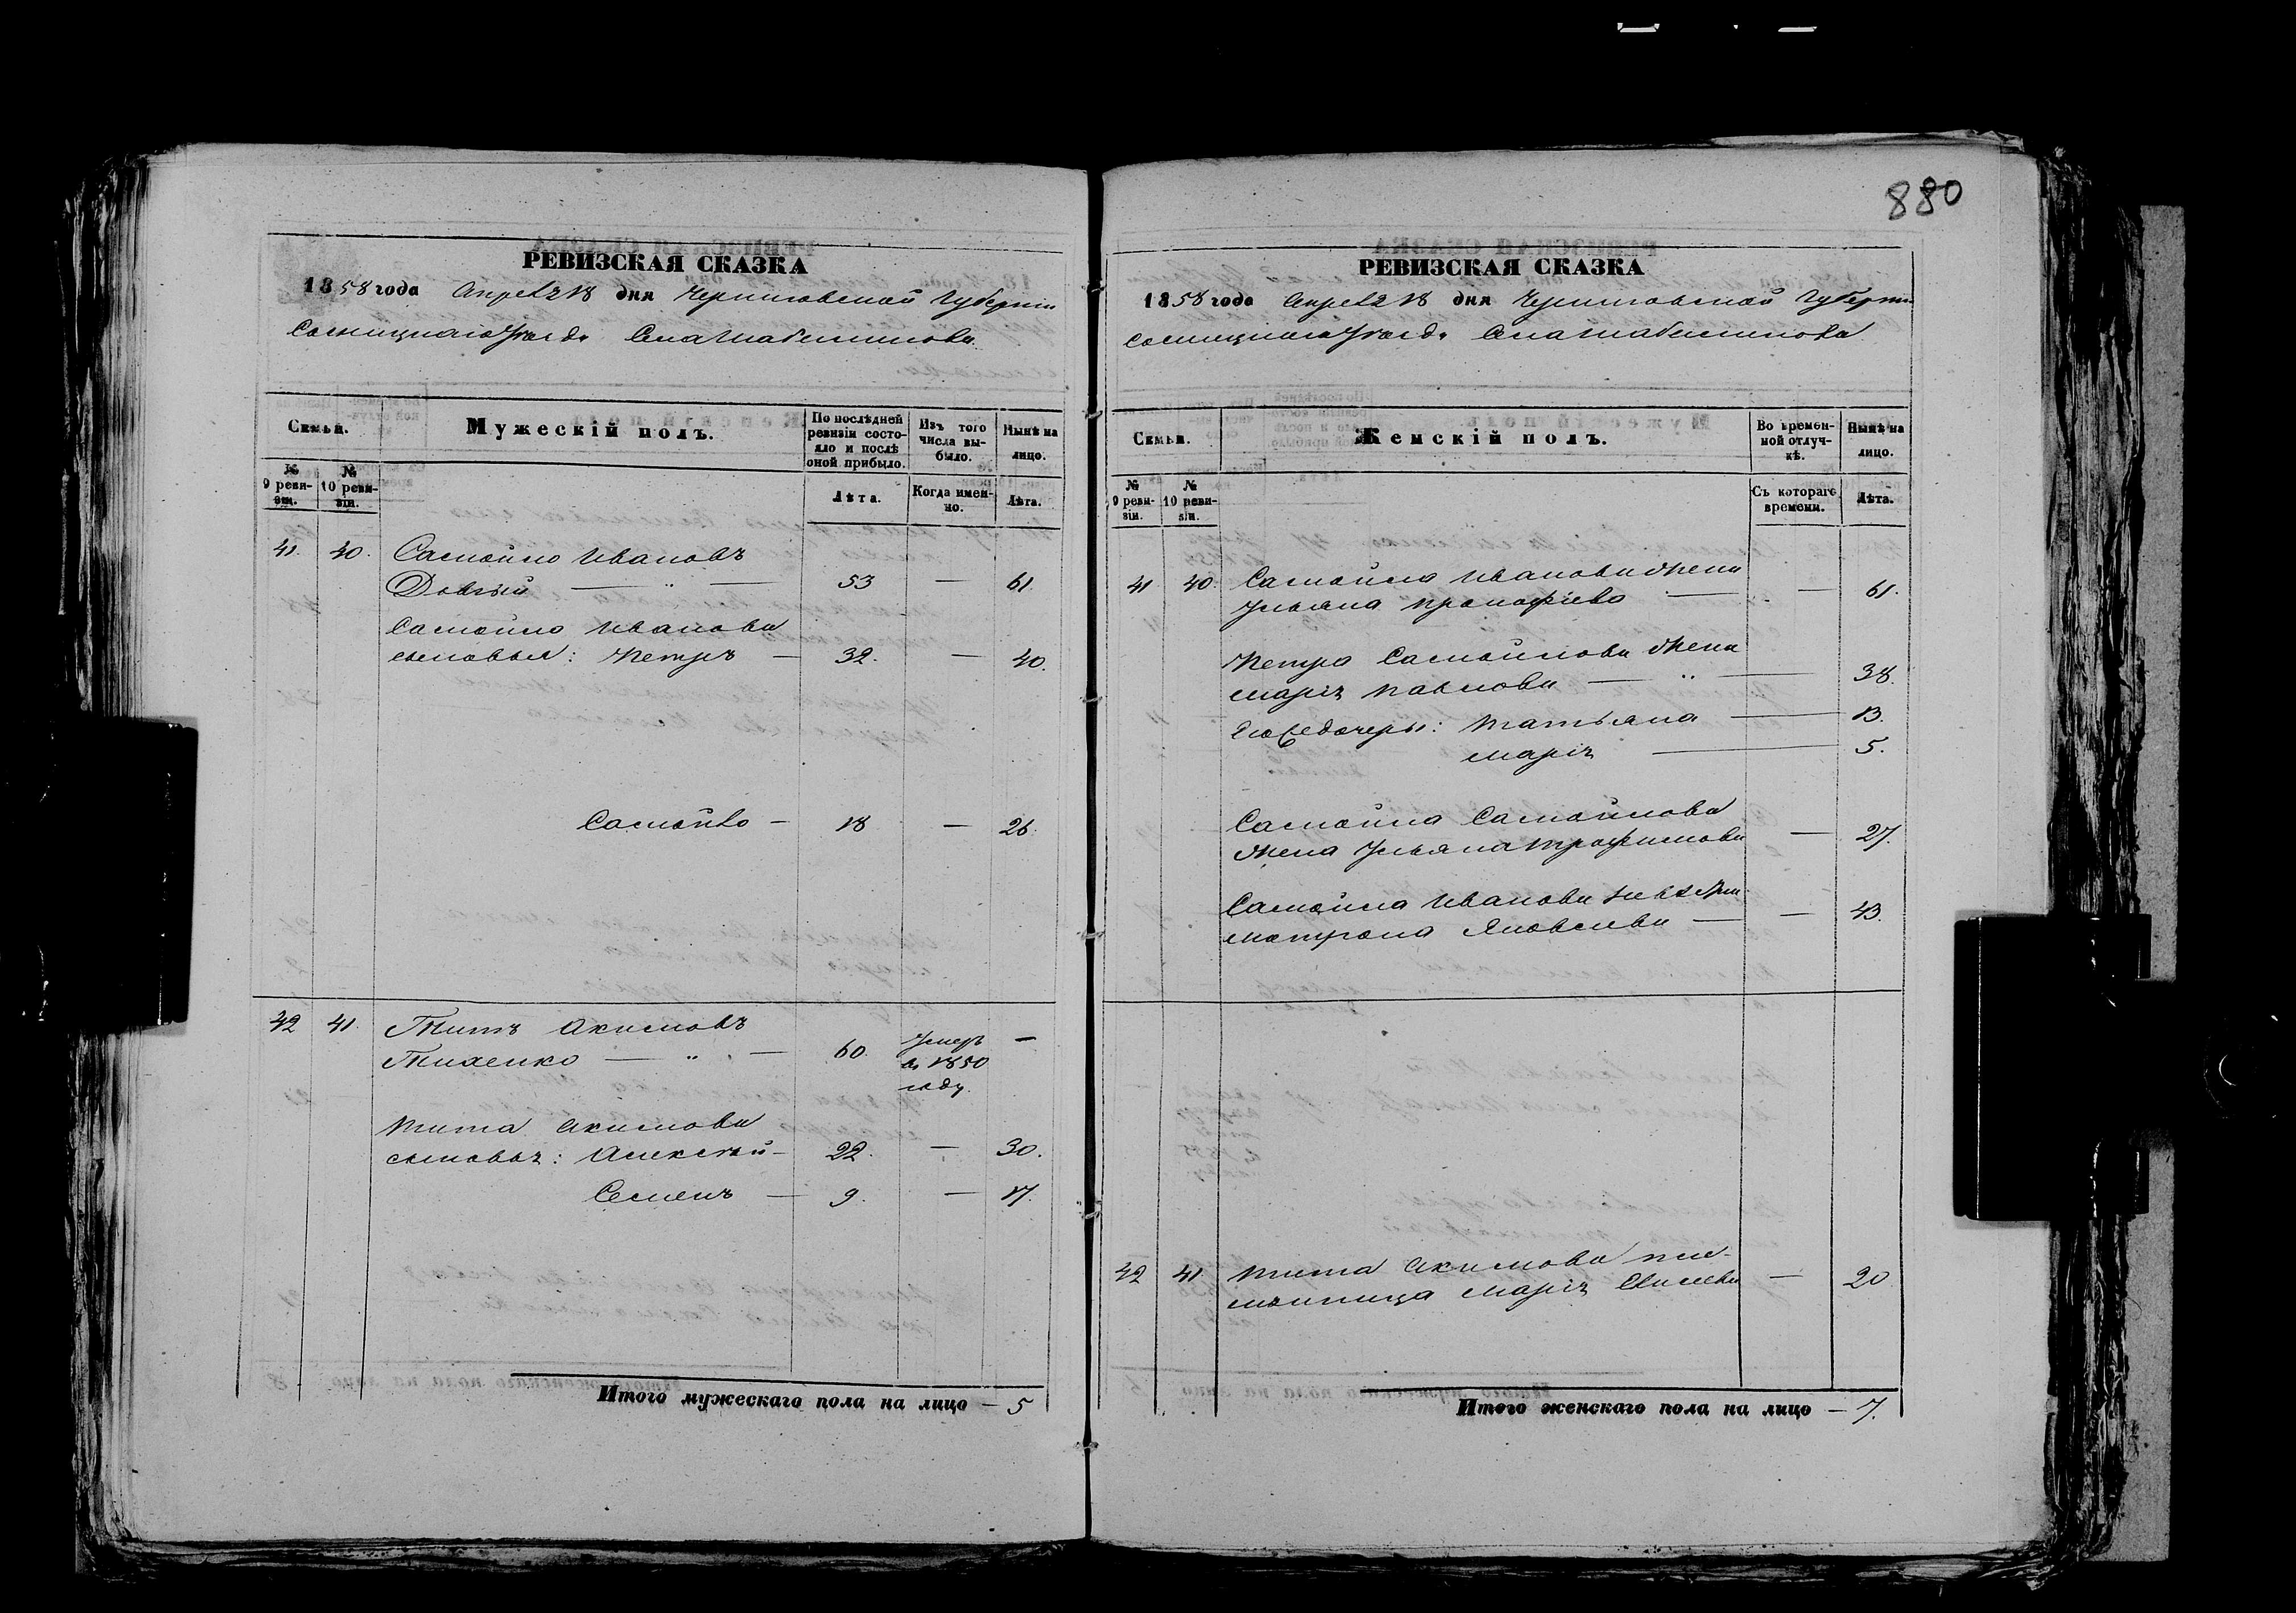 880
РЕВИЗСКАЯ СКАЗКА
1858 года Апреля 18 дня Черниговской Губерніи
Сосницкаго Уѣзда Села Шабалинова
Семьи.
Мужескій полъ.
По послѣдней ревизіи состояло и послѣ оной прибыло.
Изъ того числа выбыло.
Нынѣ на лицо.
№ 9 ревизіи.
№ 10 ревизіи.
Лѣта.
Когда именно.
Лѣта.
41. 40. Самойло Ивановъ
Довгый — " — 53 — 61.
Самойла Иванова
сыновья: Петръ — 32. — 40.
Самойло — 18 — 26.
42 41. Титъ Акимовъ
Тихенко — " — 60. Умеръ въ 1850 году. —
Тита Акимова
сыновья: Алексѣй — 22. — 30.
Семенъ — 9. — 17.
Итого мужескаго пола на лицо — 5
РЕВИЗСКАЯ СКАЗКА
1858 года Апреля 18 дня Черниговской Губерніи
Сосницкаго Уѣзда Села Шабалинова
Семьи.
Женскій полъ.
Во временной отлучкѣ.
Нынѣ на лицо.
№ 9 ревизіи.
№ 10 ревизіи.
Съ котораго времени.
Лѣта.
41 40. Самойла Иванова жена
Ульяна Прокофіева — — 61.
Петра Самойлова жена
Марія Павлова — " — 38.
Его дочери: Татьяна — 13.
Марія — 5.
Самойла Самойлова
жена Ульяна Трофимова — 27.
Самойла Иванова невѣстка
Матрона Яковлева — — 43.
42 41. Тита Акимова пле-
мянница Марія — 20
Итого женскаго пола на лицо — 7.